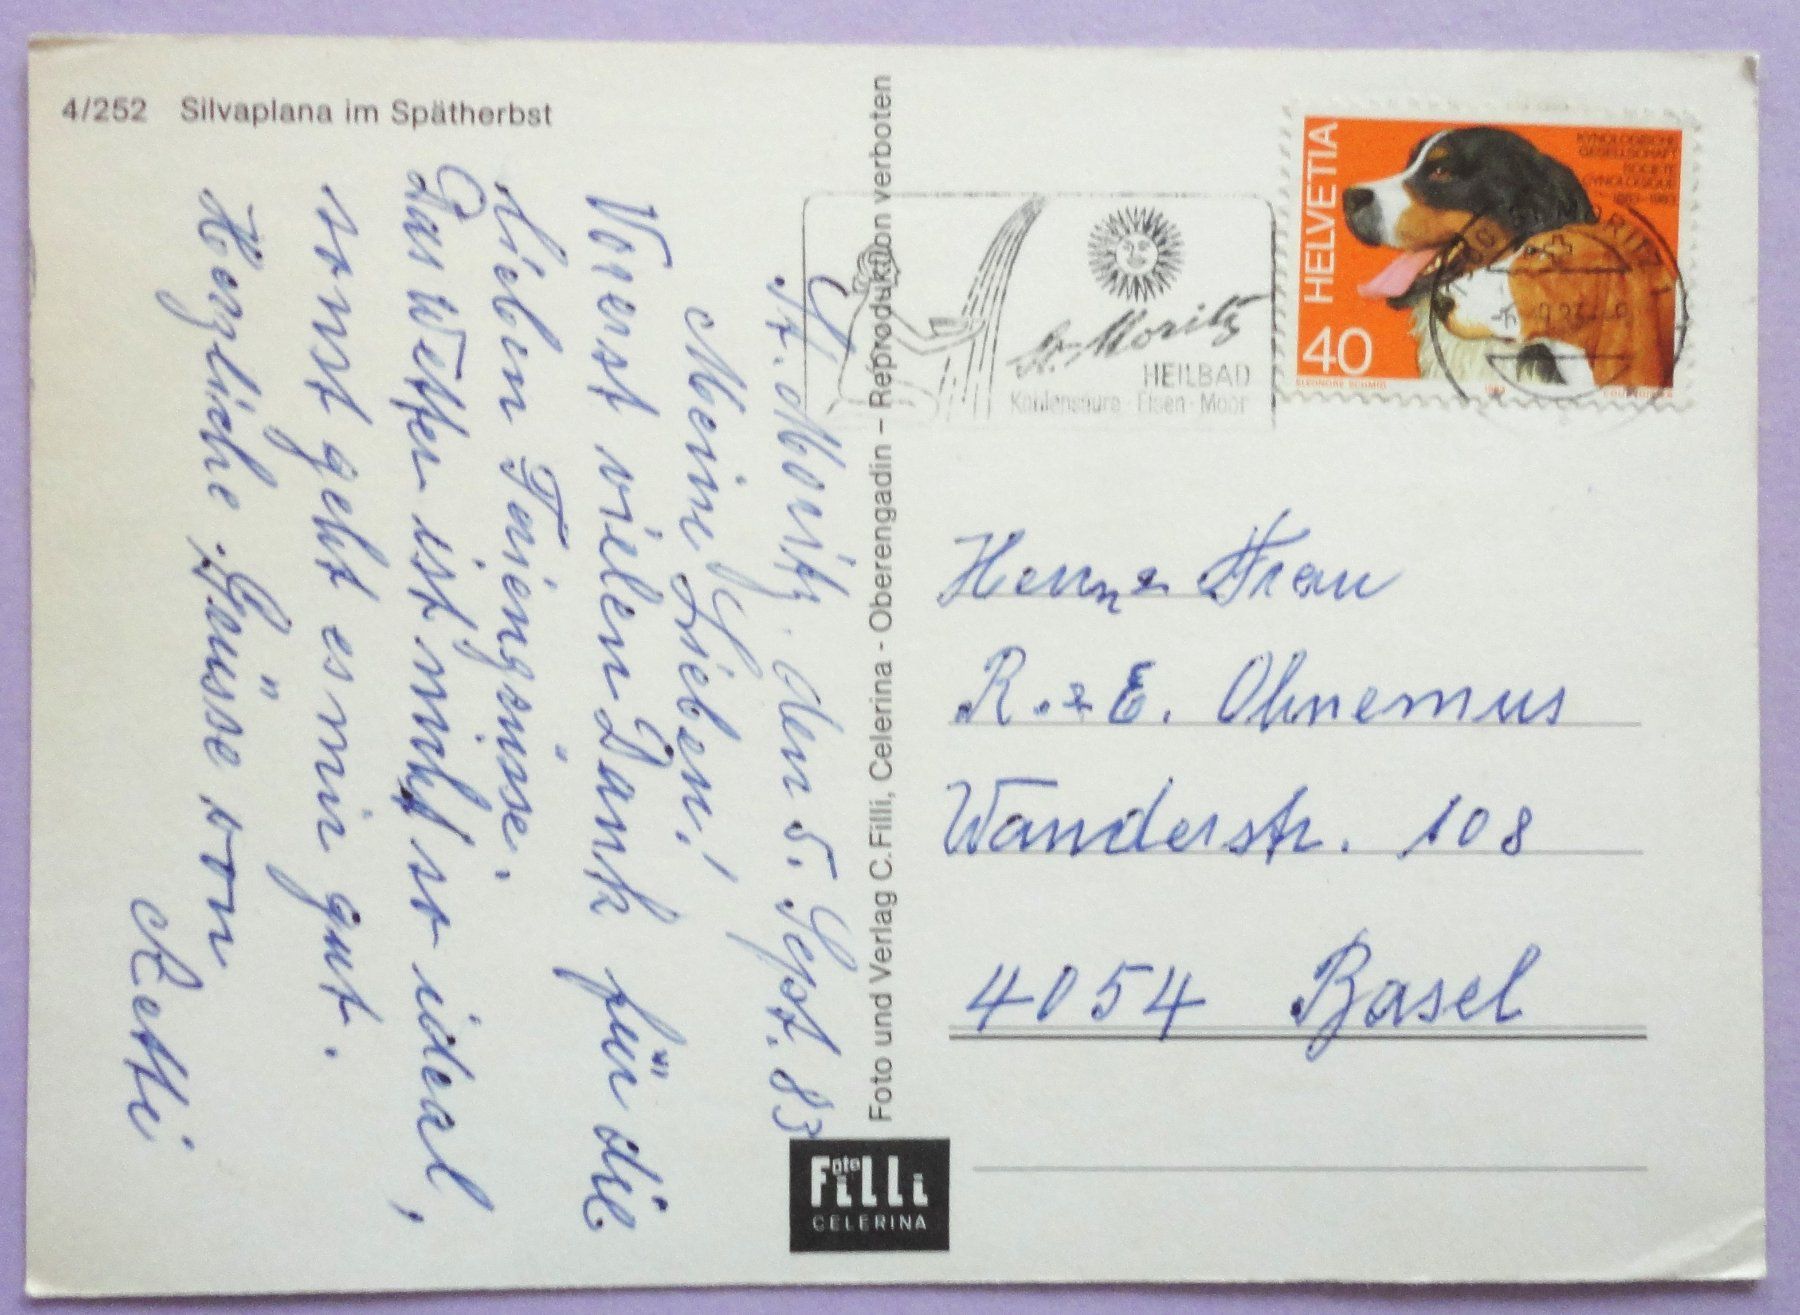 4/252 Silvaplana im Spätherbst
St. Moritz, den 5. Sept. 83
Meine Lieben!
Vorerst vielen Dank für die
lieben Feriengrüsse.
Das Wetter ist nicht so ideal,
sonst geht es mir gut.
Herzliche Grüsse von
Foto und Verlag C. Filli, Celerina - Oberengadin – Reproduktion verboten
Foto
Filli
CELERINA
St. Moritz
HEILBAD
Kohlensäure - Eisen - Moor
HELVETIA
40
KYNOLOGISCHE
GESELLSCHAFT
SOCIÉTÉ
CYNOLOGIQUE
1883-1983
ELEONORE SCHMID
1983
COURVOISIER
ST. MORITZ 1
Herrn & Frau
R. & E. Ohnemus
Wanderstr. 108
4054 Basel